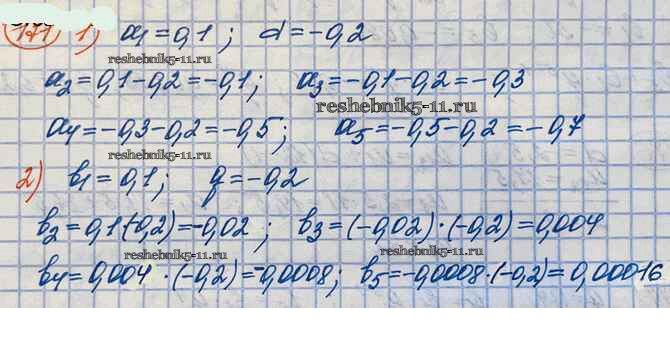 171 1) a1 = 0,1; d = -0,2
reshebnik5-11.ru
a2 = 0,1 - 0,2 = -0,1; a3 = -0,1 - 0,2 = -0,3
reshebnik5-11.ru
a4 = -0,3 - 0,2 = -0,5; a5 = -0,5 - 0,2 = -0,7
reshebnik5-11.ru
2) b1 = 0,1; q = -0,2
reshebnik5-11.ru
b2 = 0,1·(-0,2) = -0,02; b3 = (-0,02)·(-0,2) = 0,004
reshebnik5-11.ru reshebnik5-11.ru
b4 = 0,004·(-0,2) = -0,0008; b5 = -0,0008·(-0,2) = 0,00016